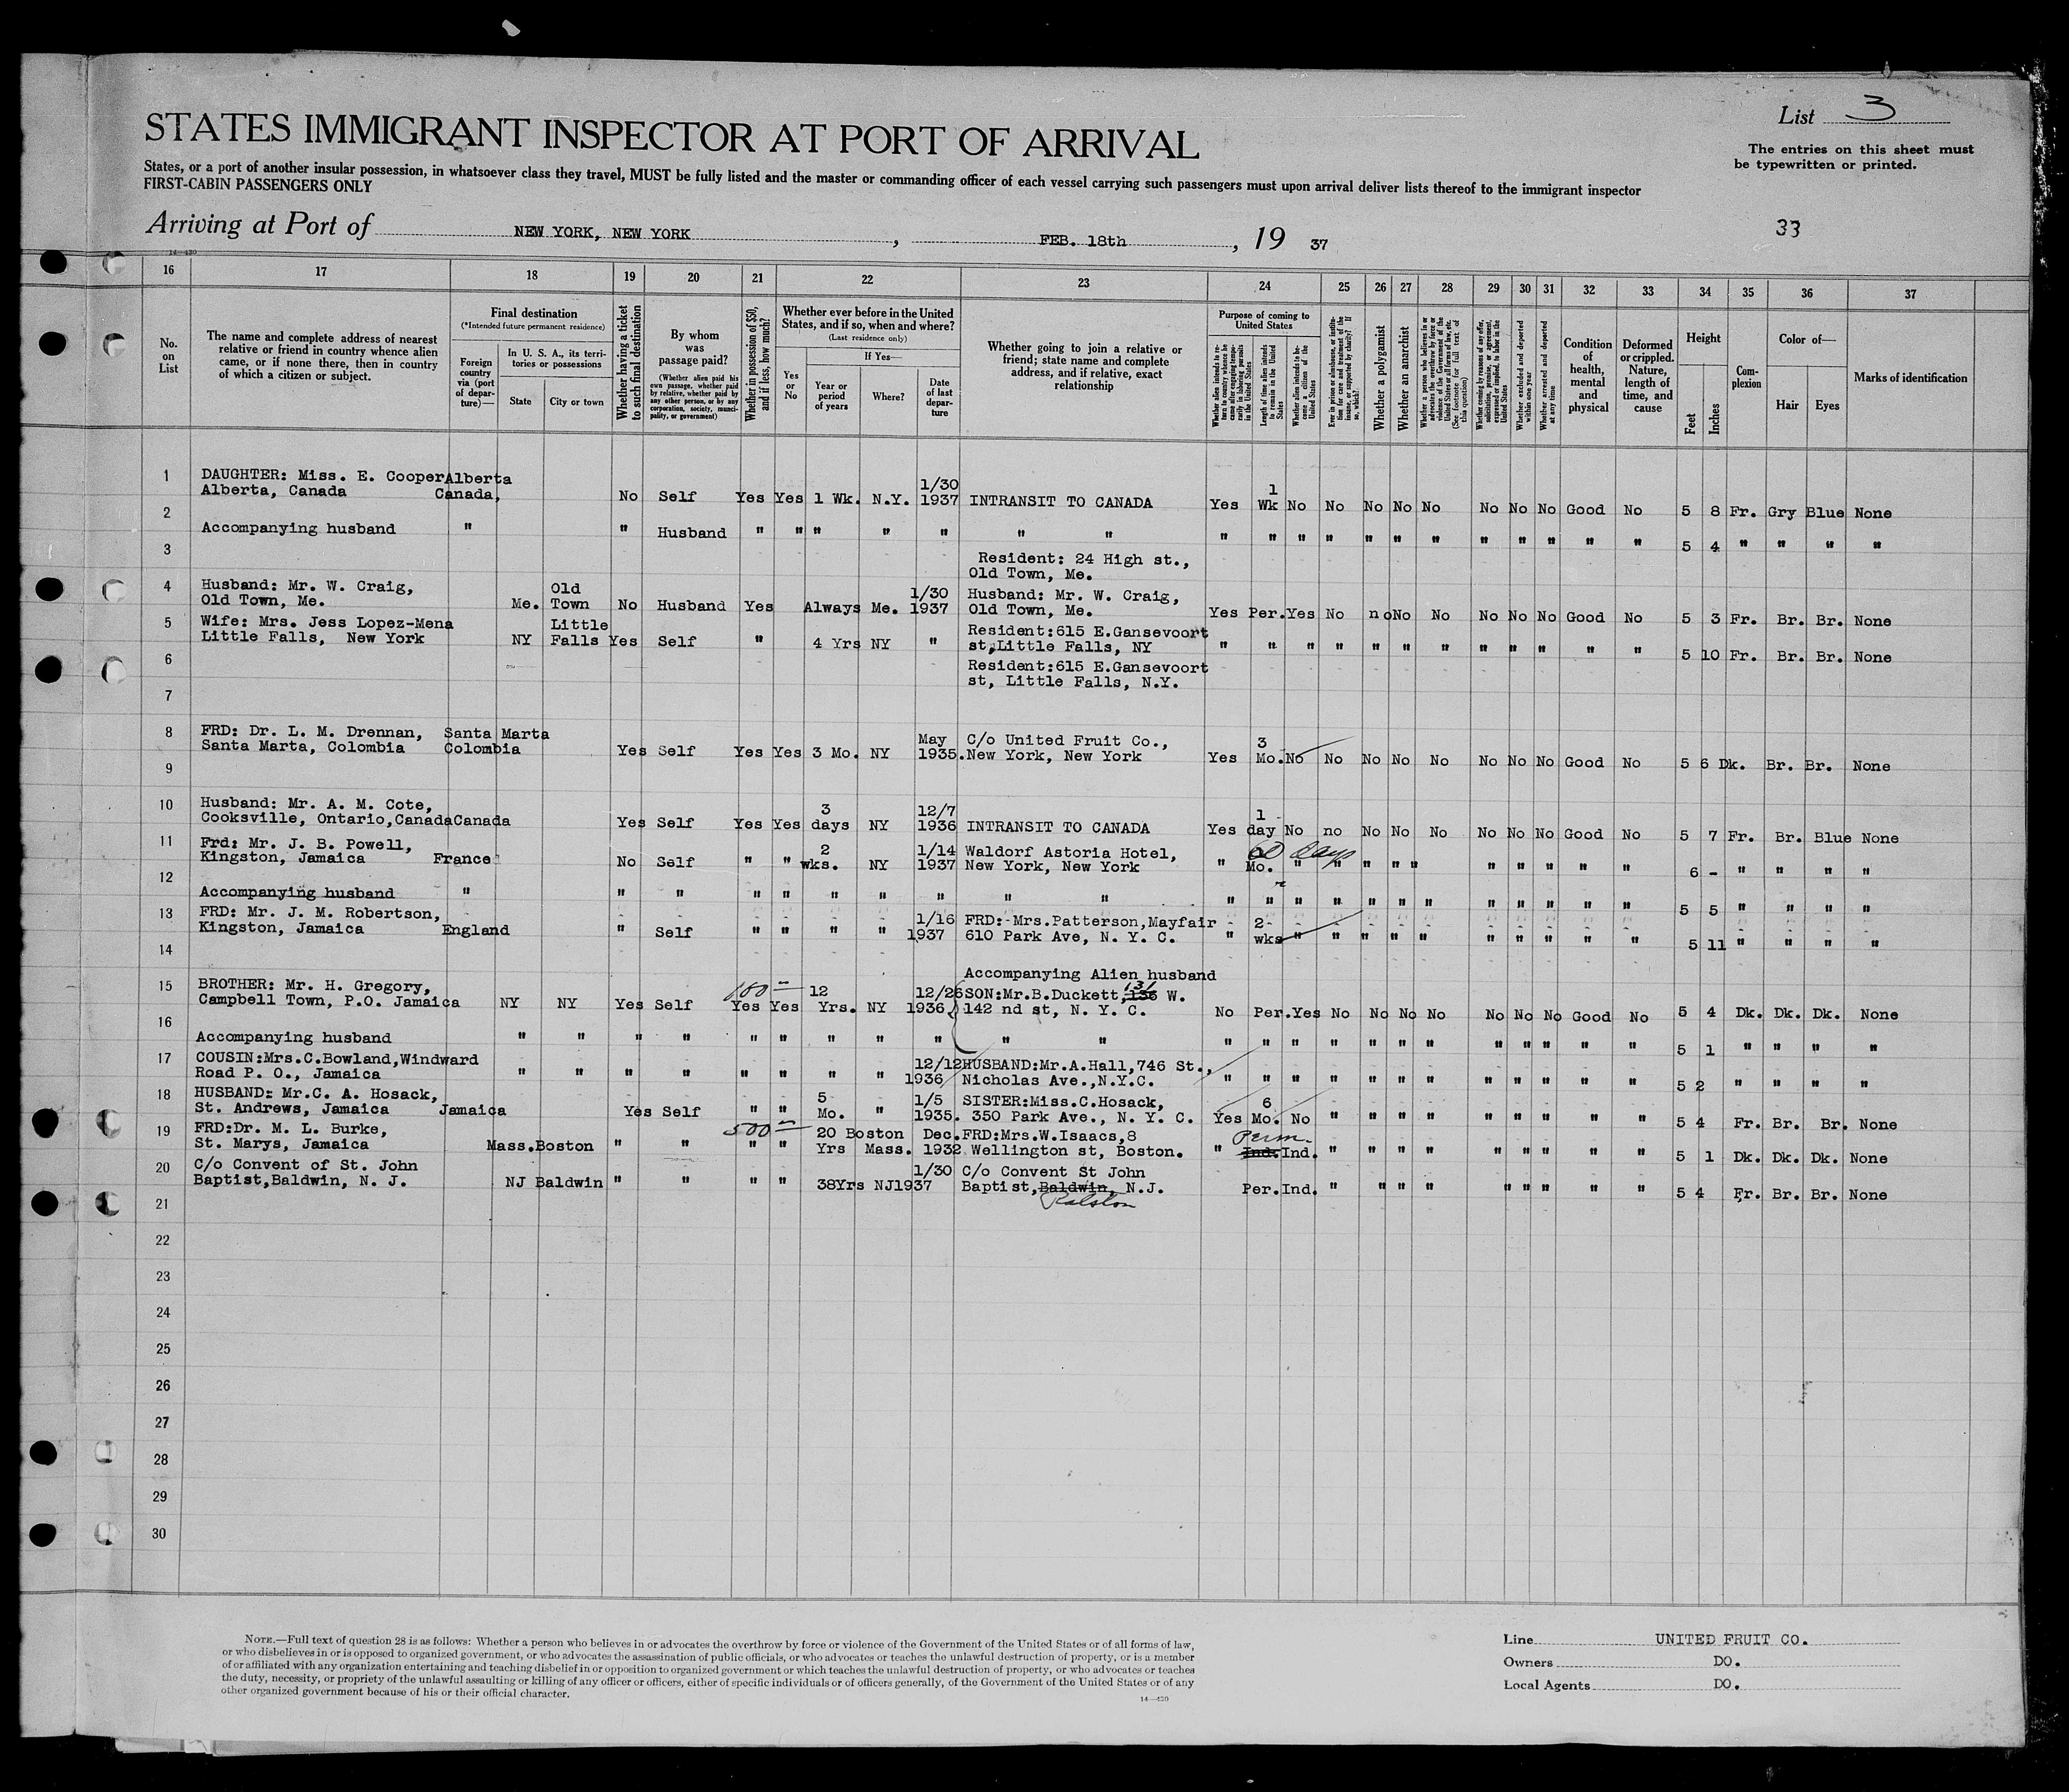 List 3
STATES IMMIGRANT INSPECTOR AT PORT OF ARRIVAL
The entries on this sheet must
be typewritten or printed.
States, or a port of another insular possession, in whatsoever class they travel, MUST be fully listed and the master or commanding officer of each vessel carrying such passengers must upon arrival deliver lists thereof to the immigrant inspector
FIRST-CABIN PASSENGERS ONLY
Arriving at Port of NEW YORK, NEW YORK, FEB. 18th, 19 37
33
14—430
16 17 18 19 20 21 22 23 24 25 26 27 28 29 30 31 32 33 34 35 36 37
No. on List
The name and complete address of nearest relative or friend in country whence alien came, or if none there, then in country of which a citizen or subject.
Final destination
(*Intended future permanent residence)
Foreign country via (port of departure)—
In U. S. A., its territories or possessions
State
City or town
Whether having a ticket to such final destination
By whom was passage paid?
(Whether alien paid his own passage, whether paid by relative, whether paid by any other person, or by any corporation, society, municipality, or government)
Whether in possession of $50, and if less, how much?
Whether ever before in the United States, and if so, when and where?
(Last residence only)
If Yes—
Yes or No
Year or period of years
Where?
Date of last departure
Whether going to join a relative or friend; state name and complete address, and if relative, exact relationship
Purpose of coming to United States
Whether alien intends to return to country whence he came after engaging temporarily in laboring pursuits in the United States
Length of time alien intends to remain in the United States
Whether alien intends to become a citizen of the United States
Ever in prison or almshouse, or institution for care and treatment of the insane, or supported by charity? If so, which?
Whether a polygamist
Whether an anarchist
Whether a person who believes in or advocates the overthrow by force or violence of the Government of the United States or all forms of law, etc. (See footnote for full text of this question)
Whether coming by reason of any offer, solicitation, promise, or agreement, expressed or implied, to labor in the United States
Whether excluded and deported within one year
Whether arrested and deported at any time
Condition of health, mental and physical
Deformed or crippled. Nature, length of time, and cause
Height
Feet
Inches
Complexion
Color of—
Hair
Eyes
Marks of identification
1 DAUGHTER: Miss. E. Cooper Alberta 1/30 1
Alberta, Canada Canada, No Self Yes Yes 1 Wk. N.Y. 1937 INTRANSIT TO CANADA Yes Wk No No No No No No No No Good No 5 8 Fr. Gry Blue None
2
Accompanying husband " " Husband " " " " " " " " " " " " " " " " " " " 5 4 " " " "
3 Resident: 24 High st.,
Old Town, Me.
4 Husband: Mr. W. Craig, Old 1/30 Husband: Mr. W. Craig,
Old Town, Me. Me. Town No Husband Yes Always Me. 1937 Old Town, Me. Yes Per. Yes No no No No No No No Good No 5 3 Fr. Br. Br. None
5 Wife: Mrs. Jess Lopez-Mena Little Resident:615 E.Gansevoort
Little Falls, New York NY Falls Yes Self " 4 Yrs NY " st,Little Falls, NY " " " " " " " " " " " " 5 10 Fr. Br. Br. None
6 Resident:615 E.Gansevoort
st, Little Falls, N.Y.
7
8 FRD: Dr. L. M. Drennan, Santa Marta May C/o United Fruit Co., 3
Santa Marta, Colombia Colombia Yes Self Yes Yes 3 Mo. NY 1935. New York, New York Yes Mo. No No No No No No No No Good No 5 6 Dk. Br. Br. None
9
10 Husband: Mr. A. M. Cote, 3 12/7 1
Cooksville, Ontario,Canada Canada Yes Self Yes Yes days NY 1936 INTRANSIT TO CANADA Yes day No no No No No No No No Good No 5 7 Fr. Br. Blue None
11 Frd: Mr. J. B. Powell, 2 1/14 Waldorf Astoria Hotel, 60 days
Kingston, Jamaica France No Self " " wks. NY 1937 New York, New York " Mo. " " " " " " " " " " 6 - " " " "
12
Accompanying husband " " " " " " " " " " " " " " " " " " " " " 5 5 " " " "
13 FRD: Mr. J. M. Robertson, 1/16 FRD: Mrs.Patterson,Mayfair 2
Kingston, Jamaica England " Self " " " " 1937 610 Park Ave, N. Y. C. " wks " " " " " " " " " " 5 11 " " " "
14
Accompanying Alien husband
15 BROTHER: Mr. H. Gregory, 100 — 12 12/26 SON:Mr.B.Duckett, 131 136 W.
Campbell Town, P.O. Jamaica NY NY Yes Self Yes Yes Yrs. NY 1936 142 nd st, N. Y. C. No Per. Yes No No No No No No No Good No 5 4 Dk. Dk. Dk. None
16
Accompanying husband " " " " " " " " " " " " " " " " " " " " " " 5 1 " " " "
17 COUSIN:Mrs.C.Bowland,Windward 12/12 HUSBAND:Mr.A.Hall,746 St.,
Road P. O., Jamaica " " " " " " " " 1936 Nicholas Ave.,N.Y.C. " " " " " " " " " " " " 5 2 " " " "
18 HUSBAND: Mr.C. A. Hosack, 5 1/5 SISTER:Miss.C.Hosack, 6
St. Andrews, Jamaica Jamaica Yes Self " " Mo. " 1935. 350 Park Ave., N. Y. C. Yes Mo. No " " " " " " " " " 5 4 Fr. Br. Br. None
19 FRD:Dr. M. L. Burke, 500 — 20 Boston Dec. FRD:Mrs.W.Isaacs,8 Perm.
St. Marys, Jamaica Mass. Boston " " " " Yrs Mass. 1932 Wellington st, Boston. " Ind. Ind. " " " " " " " " " 5 1 Dk. Dk. Dk. None
20 C/o Convent of St. John 1/30 C/o Convent St John
Baptist,Baldwin, N. J. NJ Baldwin " " " " 38Yrs NJ 1937 Baptist,Baldwin, N.J. Per. Ind. " " " " " " " " " 5 4 Fr. Br. Br. None
Ralston
21
22
23
24
25
26
27
28
29
30
NOTE.—Full text of question 28 is as follows: Whether a person who believes in or advocates the overthrow by force or violence of the Government of the United States or of all forms of law,
or who disbelieves in or is opposed to organized government, or who advocates the assassination of public officials, or who advocates or teaches the unlawful destruction of property, or is a member
of or affiliated with any organization entertaining and teaching disbelief in or opposition to organized government or which teaches the unlawful destruction of property, or who advocates or teaches
the duty, necessity, or propriety of the unlawful assaulting or killing of any officer or officers, either of specific individuals or of officers generally, of the Government of the United States or of any
other organized government because of his or their official character.
14—430
Line UNITED FRUIT CO.
Owners DO.
Local Agents DO.